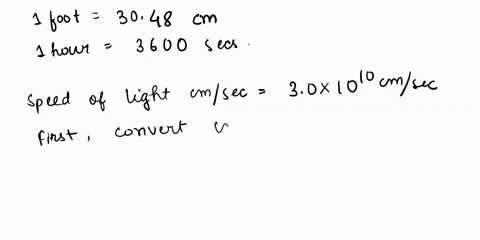 1 foot = 30.48 cm
1 hour = 3600 secs.
Speed of light cm/sec = 3.0×10¹⁰ cm/sec
First, convert